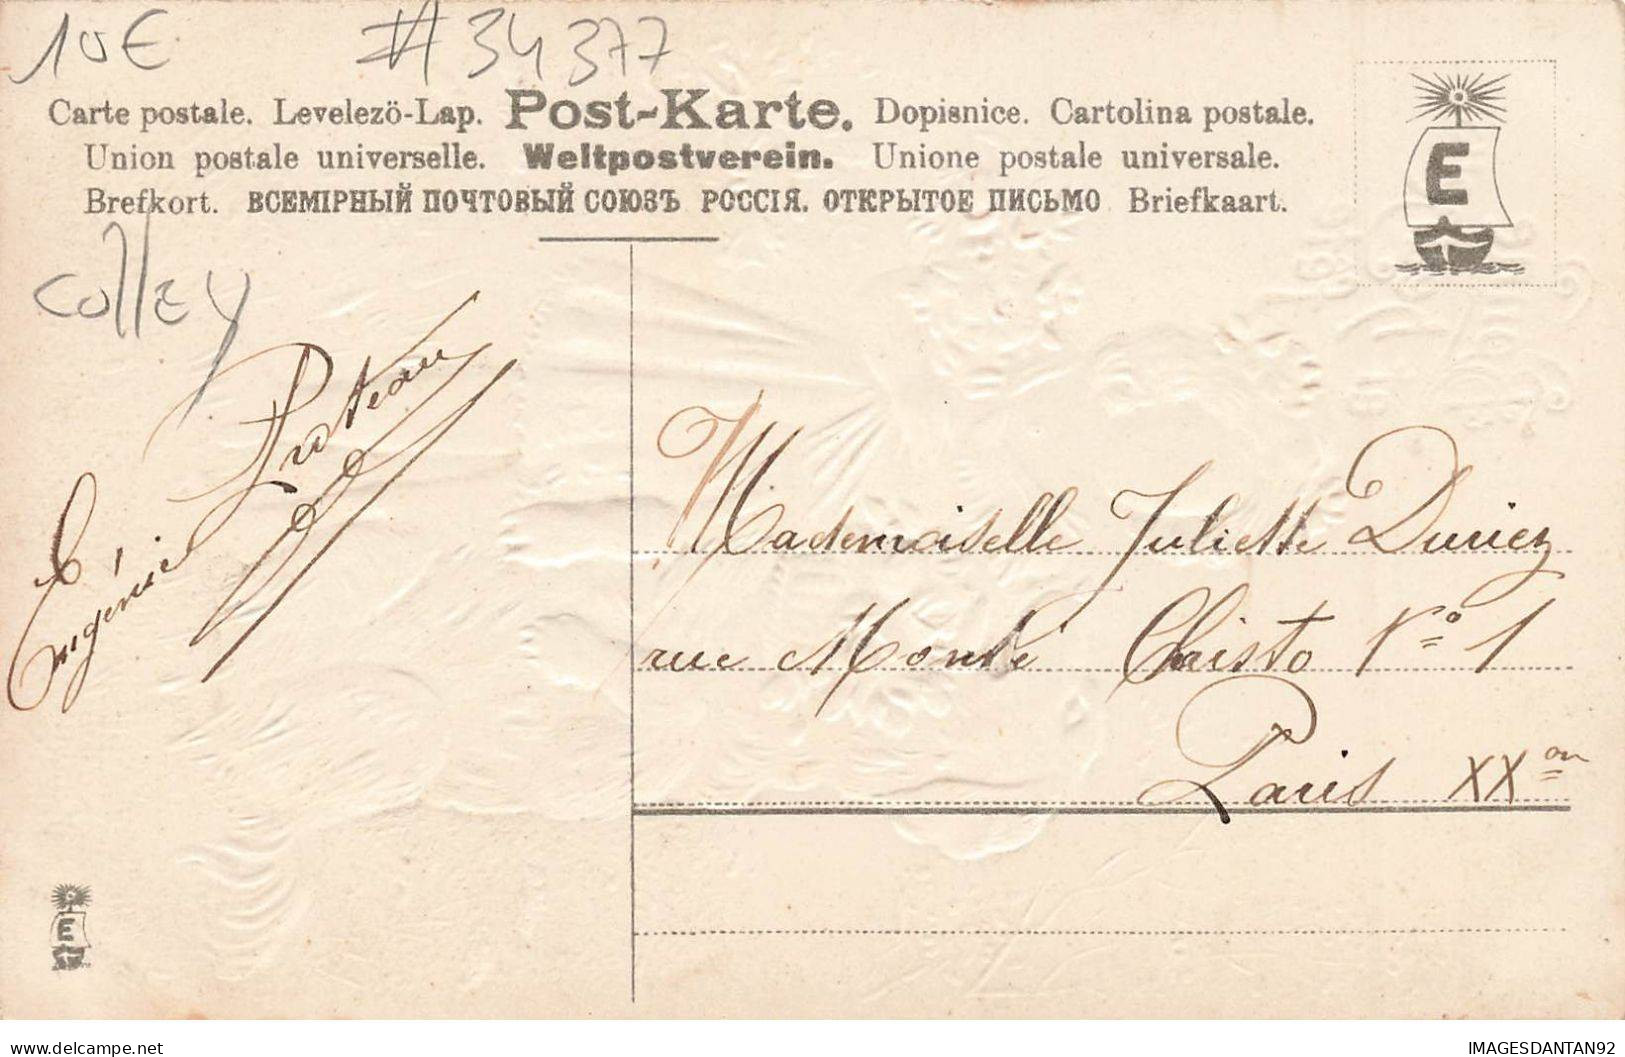 10€ #34377
Carte postale. Levelezö-Lap. Post-Karte. Dopisnice. Cartolina postale.
Union postale universelle. Weltpostverein. Unione postale universale.
Brefkort. ВСЕМІРНЫЙ ПОЧТОВЫЙ СОЮЗЪ РОССІЯ. ОТКРЫТОЕ ПИСЬМО Briefkaart.
E
colley
Eugénie Proteau
Mademoiselle Juliette Duriez
rue Monte Christo Nº 1
Paris XXe
E
delcampe.net
IMAGESDANTAN92